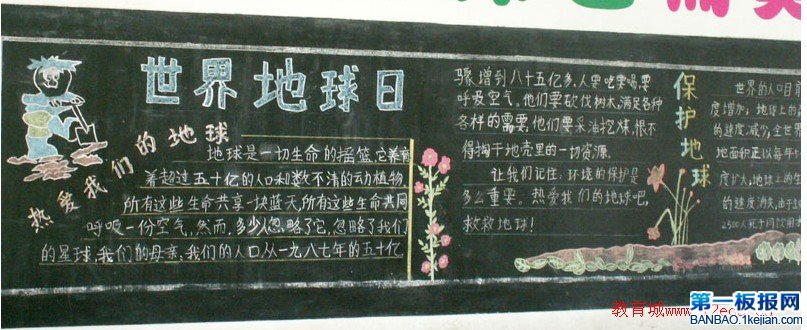 世界地球日
热爱我们的地球
地球是一切生命的摇篮,它养育
着超过五十亿的人口和数不清的动植物,
所有这些生命共享一块蓝天,所有这些生命共同
呼吸一份空气,然而,多少人忽略了它,忽略了我们
的星球,我们的母亲,我们的人口从一九八七年的五十亿
骤增到八十五亿多,人要吃要喝,要
呼吸空气。他们要砍伐树木,满足各种
各样的需要,他们要采油挖煤,恨不
得掏干地壳里的一切资源。
让我们记住,环境的保护是
多么重要。热爱我们的地球吧,
救救地球!
保护地球
世界的人口日
度增加;地球上的
的速度减少;全世界
地面积正以每年
度扩大,地球上的生
的速度消失,由于
2500人死于同饮用
教育城www.12e
第一板报网
BANBAO.1kejian.com